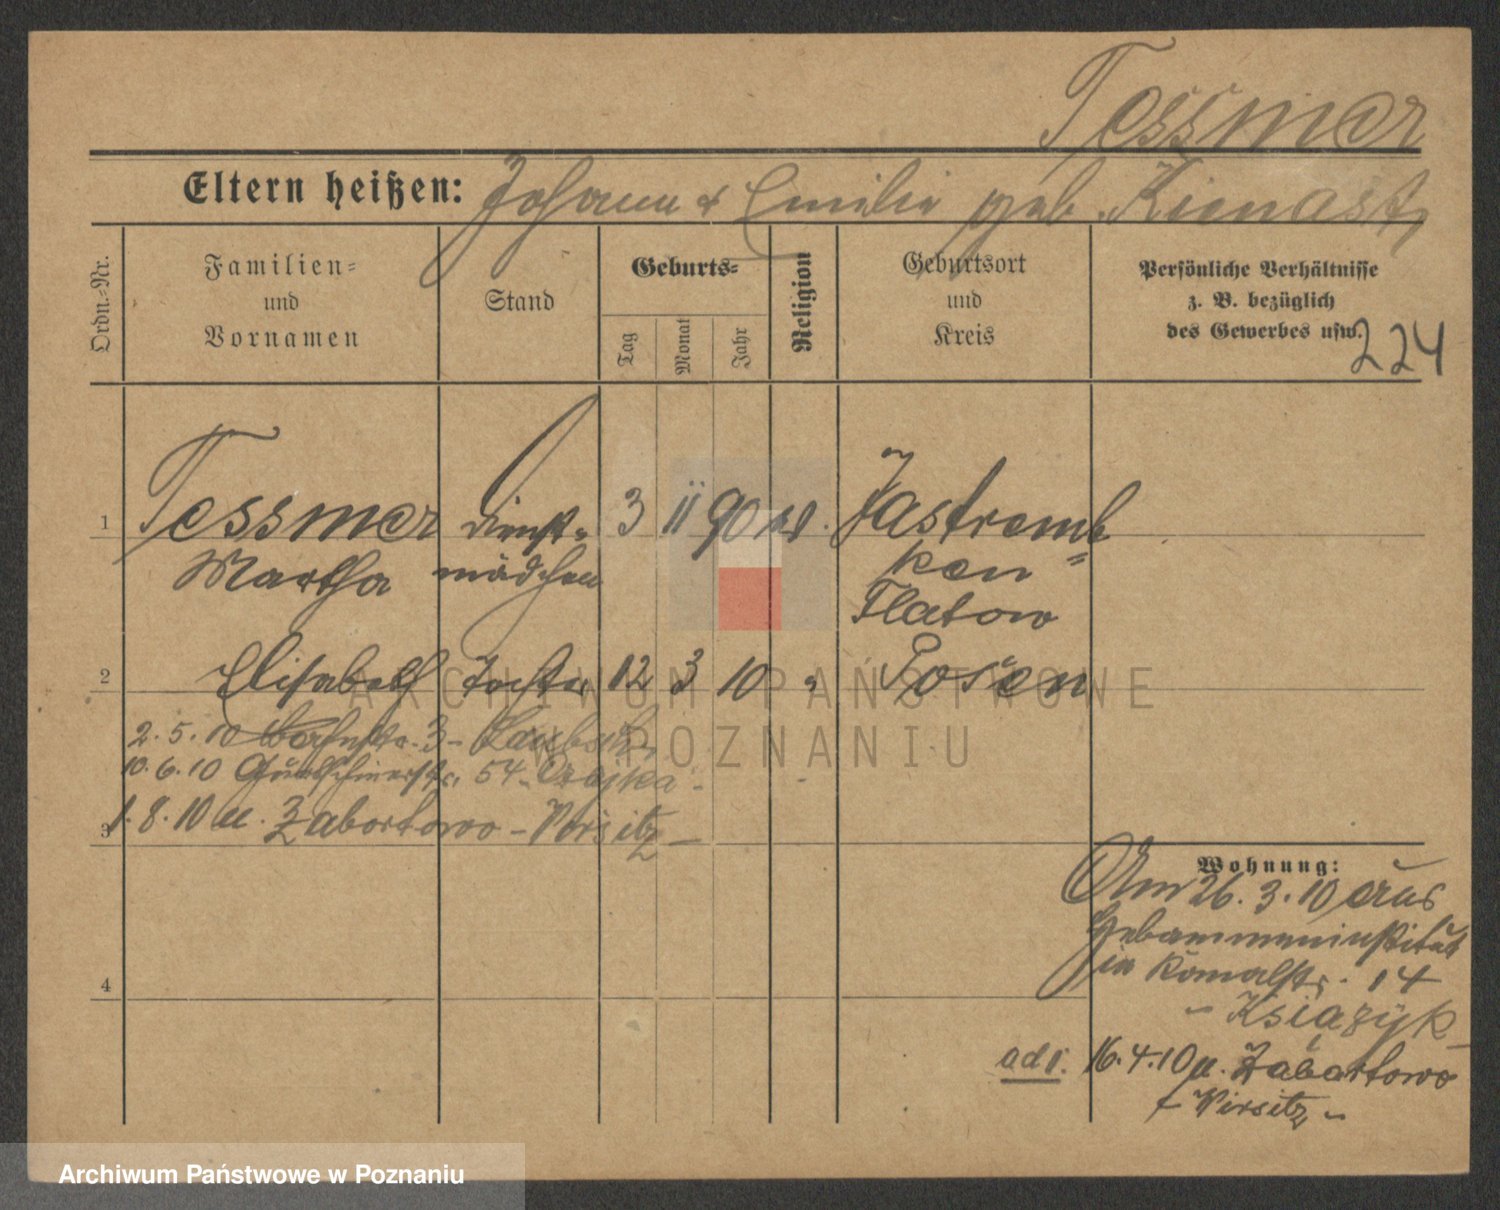 Tessmer
Eltern heißen: Johann & Emilie geb. Kienast,
Ordn.-Nr.
Familien-
und
Vornamen
Stand
Geburts-
Tag
Monat
Jahr
Religion
Geburtsort
und
Kreis
Persönliche Verhältnisse
z. B. bezüglich
des Gewerbes usw.
224
1 Tessmer Dienst- 3 11 90 Jastremb-
Martha mädchen ken
Flatow
2 Elisabeth Tochter 12 3 10 " Posen
2.5.10 3 -
10.6.10 54
3 1.8.10 u. Zabartowo - Wirsitz -
4
Wohnung:
Am 26.3.10 aus
Hebammeninstitut
in 14
- Książyk -
ad 1. 16.4.10 u. Zabartowo
- Wirsitz -
ARCHIWUM PAŃSTWOWE
W POZNANIU
Archiwum Państwowe w Poznaniu